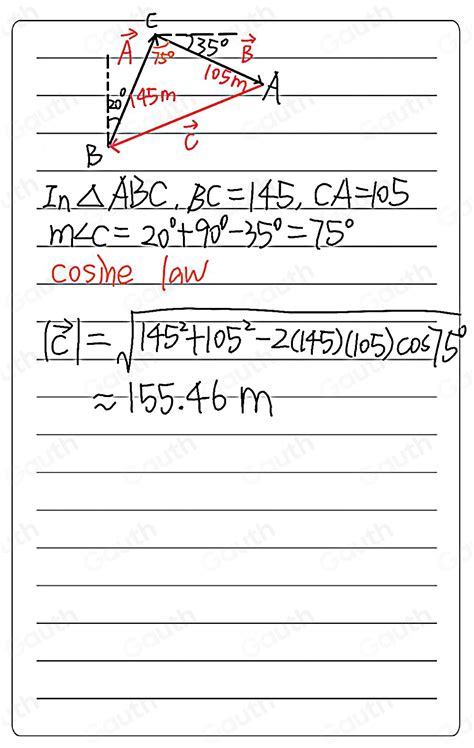 C
A⃗ 75° 35° B⃗
20° 145m 105m A
B C⃗
In △ABC, BC=145, CA=105
m∠C = 20°+90°-35°=75°
cosine law
|C⃗| = √145²+105²-2(145)(105)cos75°
≈155.46 m
Gauth